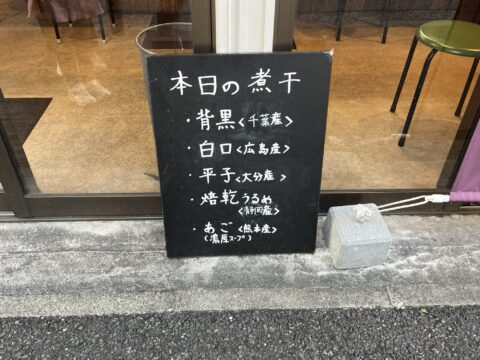 本日の煮干
・背黒<千葉産>
・白口<広島産>
・平子<大分産>
・焙乾うるめ
<静岡産>
・あご<熊本産>
(濃厚スープ)